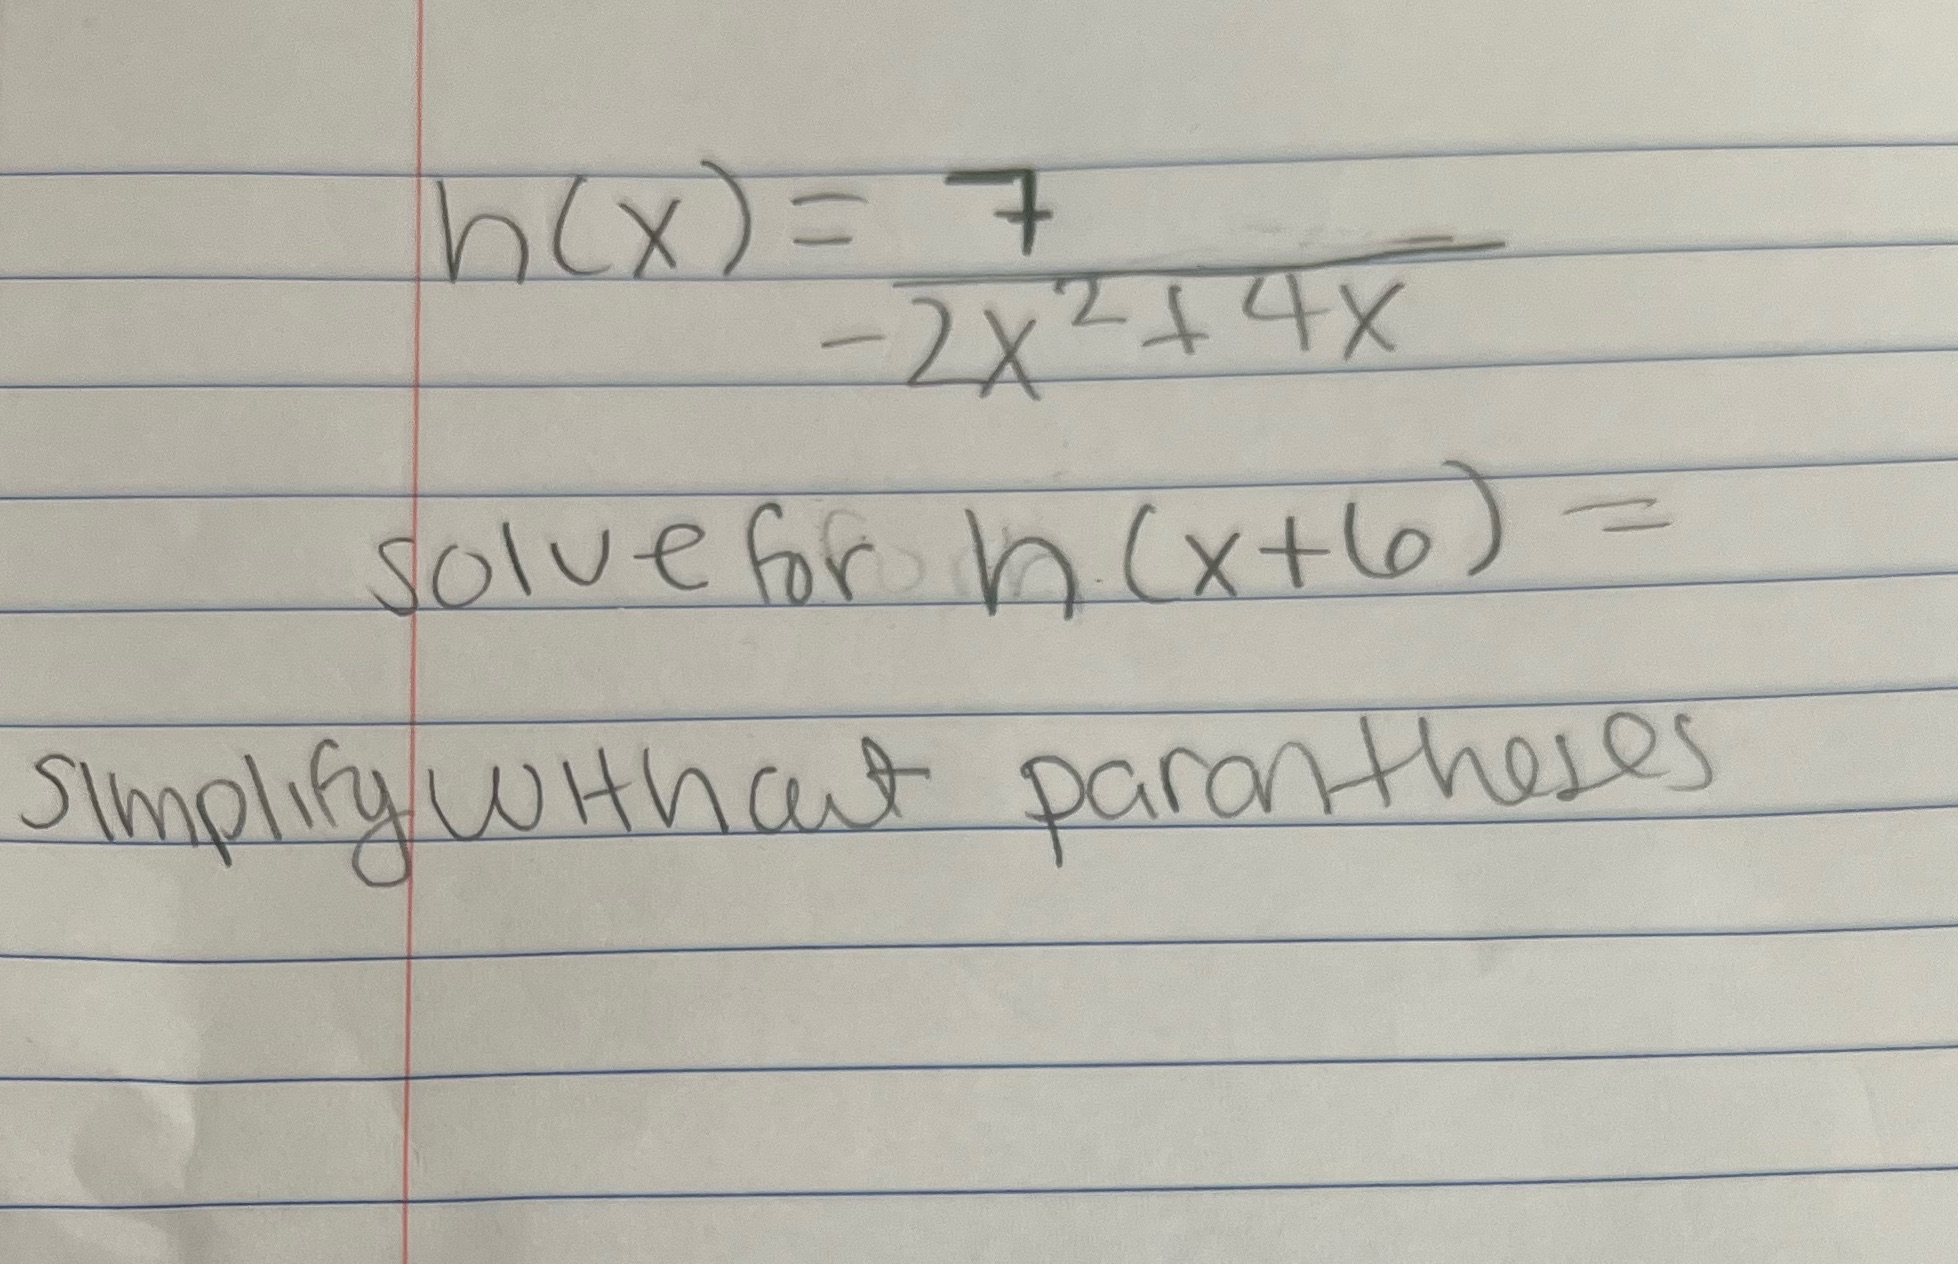 h(x) = 7
-2x² + 4x
solve for h(x+6) =
simplify without parantheses